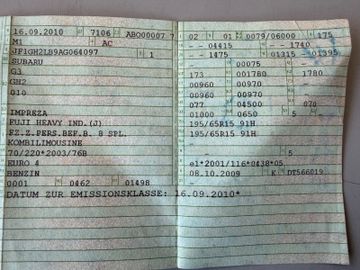 16.09.2010 7106 ABO00007 7
M1 AC
JF1GH2LB9AG064097 1
SUBARU
G3
GH2
G10
IMPREZA
FUJI HEAVY IND.(J)
FZ.Z.PERS.BEF.B. 8 SPL.
KOMBILIMOUSINE
70/220*2003/76B
EURO 4
BENZIN
0001 0462 01498
DATUM ZUR EMISSIONSKLASSE: 16.09.2010*
02 01 0079/06000 175
- - 04415 - - 1740
- - 1475 01315 - -1395
00075 - -
173 001780 1780
00960 00970 - -
00960 00970 - -
077 04500 070
01000 0650 5 -
195/65R15 91H
195/65R15 91H
- - 5
e1*2001/116*0438*05
08.10.2009 K DT566019